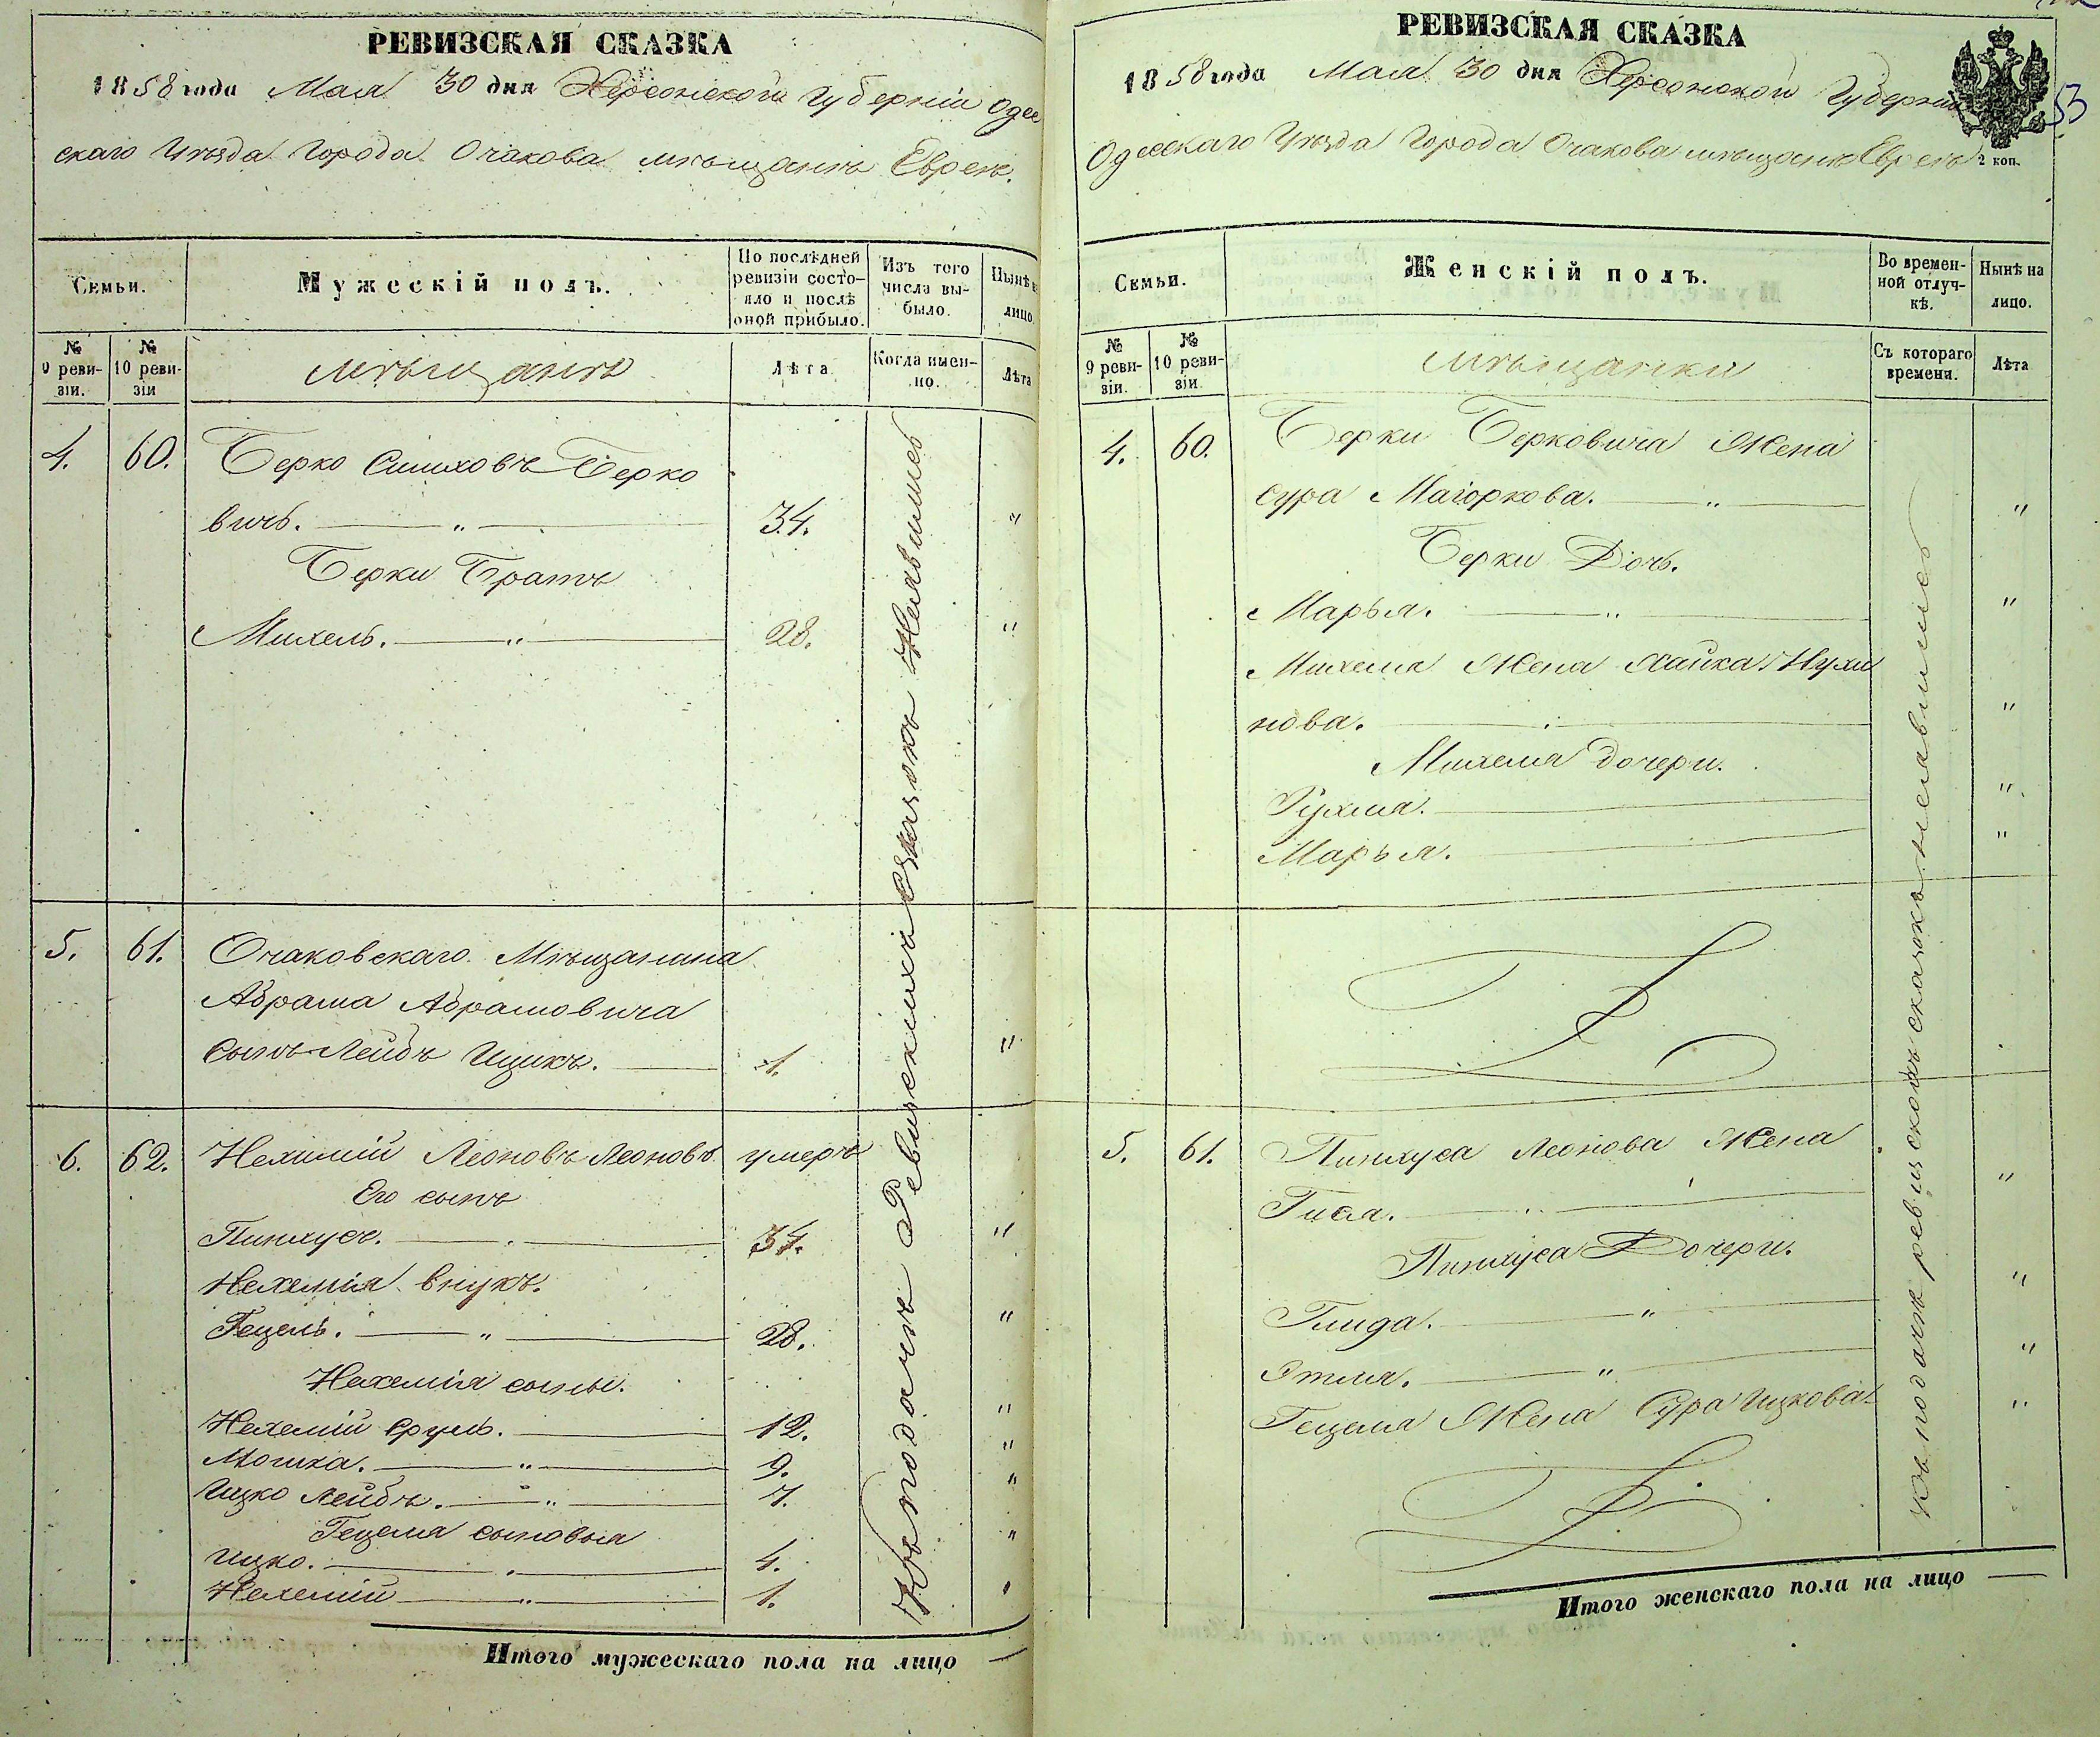 РЕВИЗСКАЯ СКАЗКА
1858 года Мая 30 дня Херсонской Губерніи Одес
скаго Уѣзда Города Очакова мѣщанъ Евреевъ.
Семьи.
Мужескій полъ.
По послѣдней ревизіи состояло и послѣ оной прибыло.
Изъ того числа выбыло.
Нынѣ на лицо
№ 9 ревизіи.
№ 10 ревизіи
мѣщанъ
Лѣта
Когда именно.
Лѣта
4. 60. Берко Симховъ Берко
вичь. — " — 34. "
Берки Братъ
Михель. — " — 28. "
5. 61. Очаковскаго Мѣщанина
Абрама Абрамовича
сынъ Лейбъ Ицикъ. — 1. "
6. 62. Нехемій Леоновъ Леоновъ умеръ
Его сынъ
Пинхусъ. — 34. "
Нехемія внукъ.
Гецель. — " — 28. "
Нехемія сыны.
Нехемій Сруль. — 12. "
Мошка. — " — 9. "
Ицко Лейбъ. — " — 7. "
Гецеля сыновья
Ицко. — 4. "
Нехемій — " — 1. "
Къ подачѣ Ревизскихъ Сказокъ Неявились
Итого мужескаго пола на лицо —
РЕВИЗСКАЯ СКАЗКА
1858 года Мая 30 дня Херсонской Губерніи
Одесскаго Уѣзда Города Очакова мѣщанъ Евреевъ
2 коп.
53
Семьи.
Женскій полъ.
Во временной отлучкѣ.
Нынѣ на лицо.
№ 9 ревизіи.
№ 10 ревизіи
мѣщанки
Съ котораго времени.
Лѣта
4. 60. Берки Берковича Жена
Сура Маіоркова. — " — "
Берки Дочь.
Марья. — " — "
Михеля Жена Хайка Нухи
нова. — "
Михеля дочери.
Рухля. — "
Марья. — "
5. 61. Пинхуса Леонова Жена
Гися. — "
Пинхуса Дочери.
Глида. — " — "
Этля. — " — "
Гецеля Жена Сура Ицкова "
къ подачѣ ревизскихъ сказокъ неявились
Итого женскаго пола на лицо —